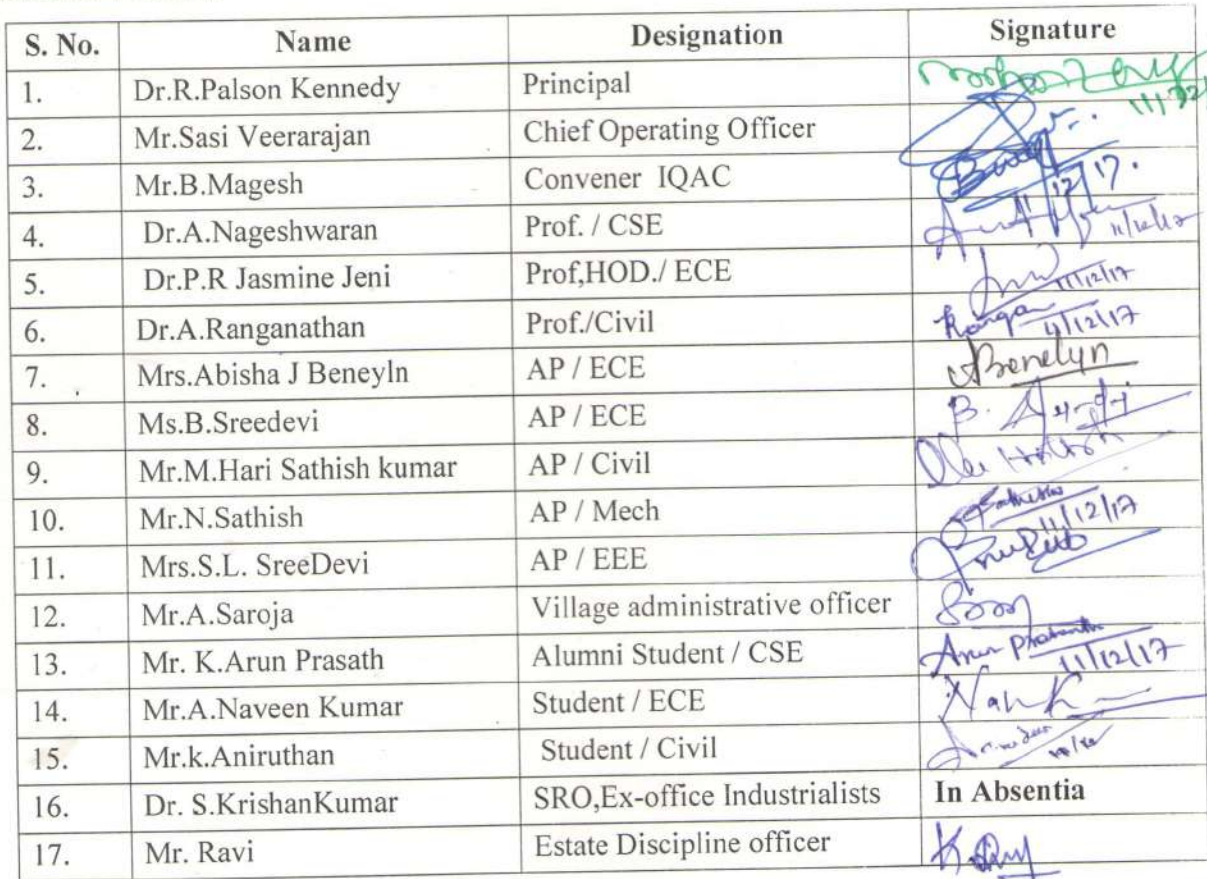 S. No. Name Designation Signature
1. Dr.R.Palson Kennedy Principal
2. Mr.Sasi Veerarajan Chief Operating Officer
3. Mr.B.Magesh Convener IQAC 12/17.
4. Dr.A.Nageshwaran Prof. / CSE 11/12/17
5. Dr.P.R Jasmine Jeni Prof,HOD./ ECE 11/12/17
6. Dr.A.Ranganathan Prof./Civil Rangan 11/12/17
7. Mrs.Abisha J Beneyln AP / ECE ABenelyn
8. Ms.B.Sreedevi AP / ECE B.
9. Mr.M.Hari Sathish kumar AP / Civil
10. Mr.N.Sathish AP / Mech 11/12/17
11. Mrs.S.L. SreeDevi AP / EEE
12. Mr.A.Saroja Village administrative officer
13. Mr. K.Arun Prasath Alumni Student / CSE Arun 11/12/17
14. Mr.A.Naveen Kumar Student / ECE
15. Mr.k.Aniruthan Student / Civil
16. Dr. S.KrishanKumar SRO,Ex-office Industrialists In Absentia
17. Mr. Ravi Estate Discipline officer